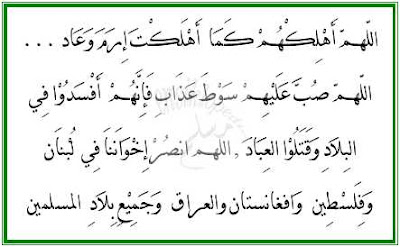 اللهمّ أَهْلِكْهُمْ كَمَا أَهْلَكْتَ إِرَمَ وَعَاد ...
اللهمّ صُبَّ عَلَيْهِمْ سَوْطَ عَذَابٍ فَإِنَّهُمْ أَفْسَدُوْا فِي
البِلَادِ وَقَتَلُوْا العِبَادَ , اللهم انصُرْ إِخْوَانَنَا فِي لُبنَان
وَفِلَسْطِين وَافغانستان والعراق وَجَمِيْعِ بِلَادِ المسلمين